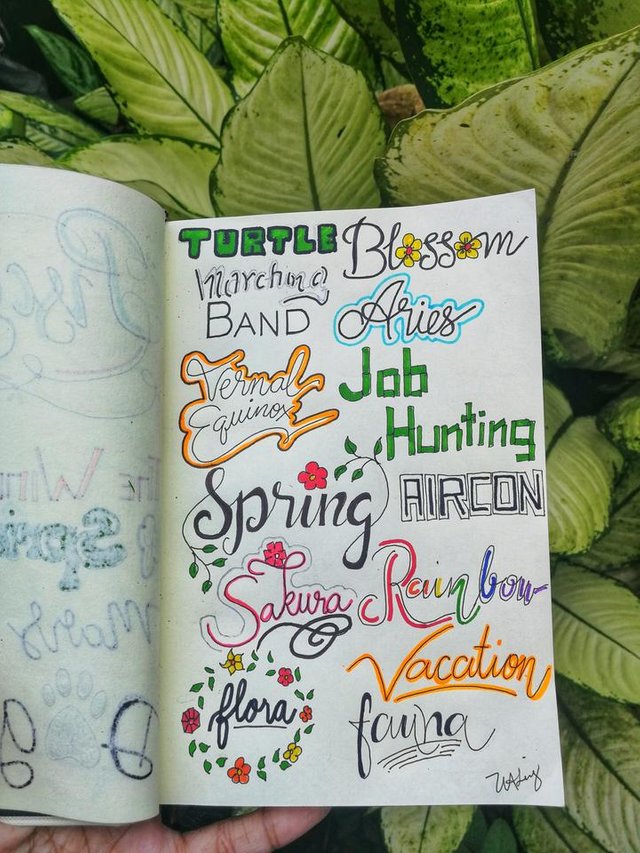 TURTLE
Blossom
Marching
BAND
Aries
Vernal
Equinox
Job
Hunting
Spring
AIRCON
Sakura
Rainbow
Vacation
flora
fauna